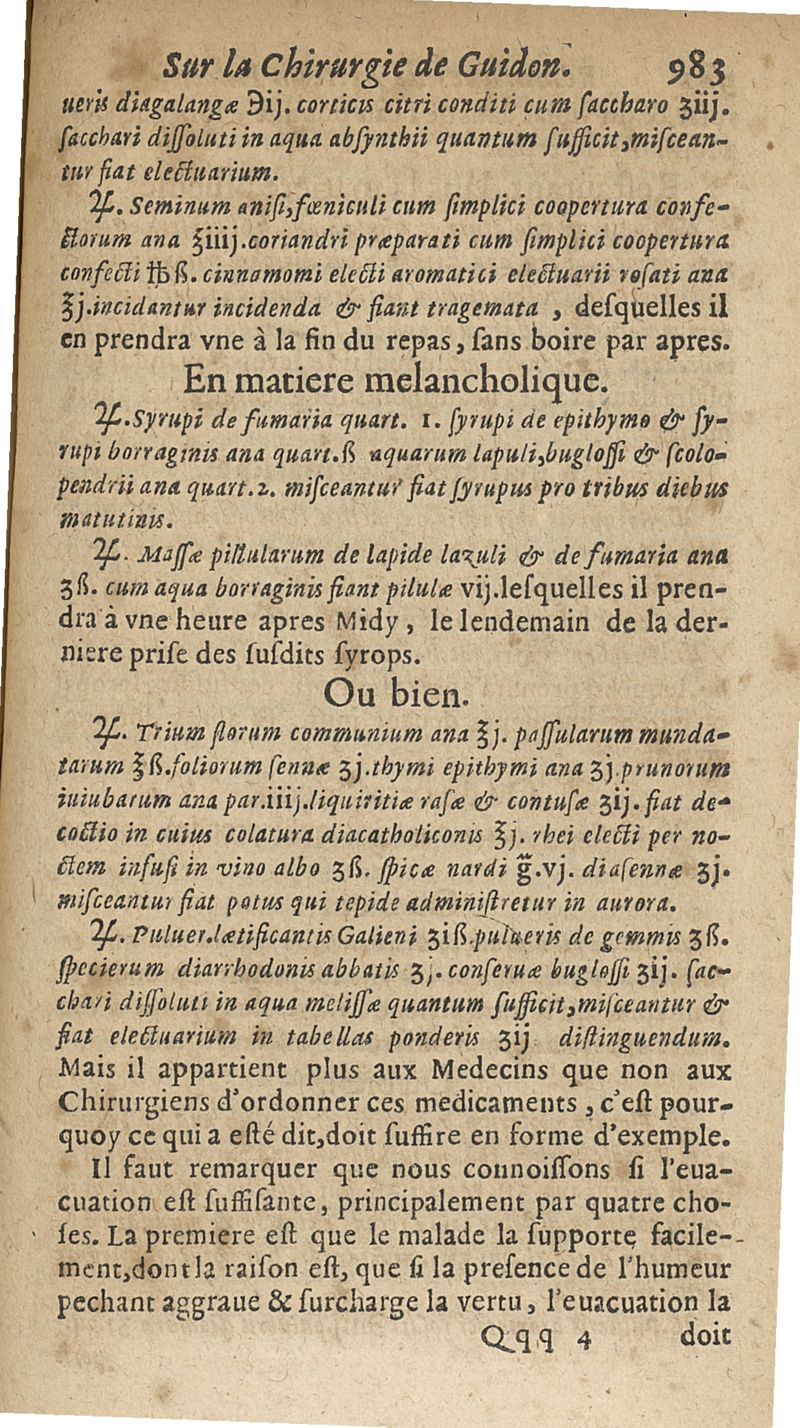 Sur la Chirurgie de Guidon. 983
ueris diagalangæ ℈ij. corticis citri conditi cum ſaccharo ʒiij.
ſacchari diſſoluti in aqua abſynthii quantum ſufficit, miſcean-
tur fiat electuarium.
♃. Seminum aniſi, fœniculi cum ſimplici coopertura confe-
ctorum ana ℥iiij. coriandri præparati cum ſimplici coopertura
confecti ℔ß. cinnamomi electi aromatici electuarii roſati ana
℥j. incidantur incidenda & fiant tragemata , deſquelles il
en prendra vne à la fin du repas, ſans boire par apres.
En matiere melancholique.
♃. Syrupi de fumaria quart. 1. ſyrupi de epithymo & ſy-
rupi borraginis ana quart. ß aquarum lapuli, bugloſſi & ſcolo-
pendrii ana quart. 2. miſceantur fiat ſyrupus pro tribus diebus
matutinis.
♃. Maſſæ pillularum de lapide lazuli & de fumaria ana
ʒß. cum aqua borraginis fiant pilulæ vij. leſquelles il pren-
dra à vne heure apres Midy , le lendemain de la der-
niere priſe des ſuſdits ſyrops.
Ou bien.
♃. Trium florum communium ana ℥j. paſſularum munda-
tarum ℥ß. foliorum ſennæ ʒj. thymi epithymi ana ʒj. prunorum
iuiubarum ana par. iiij. liquiritiæ raſæ & contuſæ ʒij. fiat de-
coctio in cuius colatura diacatholiconis ℥j. rhei electi per no-
ctem infuſi in vino albo ʒß. ſpicæ nardi g̃. vj. diaſennæ ʒj.
miſceantur fiat potus qui tepide adminiſtretur in aurora.
♃. Puluer. lætificantis Galieni ʒiß. pulueris de gemmis ʒß.
ſpecierum diarrhodonis abbatis ʒj. conſeruæ bugloſſi ʒij. ſac-
chari diſſoluti in aqua meliſſæ quantum ſufficit, miſceantur &
fiat electuarium in tabellas ponderis ʒij diſtinguendum.
Mais il appartient plus aux Medecins que non aux
Chirurgiens d'ordonner ces medicaments , c'eſt pour-
quoy ce qui a eſté dit, doit ſuffire en forme d'exemple.
Il faut remarquer que nous connoiſſons ſi l'eua-
cuation eſt ſuffiſante, principalement par quatre cho-
ſes. La premiere eſt que le malade la ſupporte facile-
ment, dont la raiſon eſt, que ſi la preſence de l'humeur
pechant aggraue & ſurcharge la vertu, l'euacuation la
Qqq 4 doit